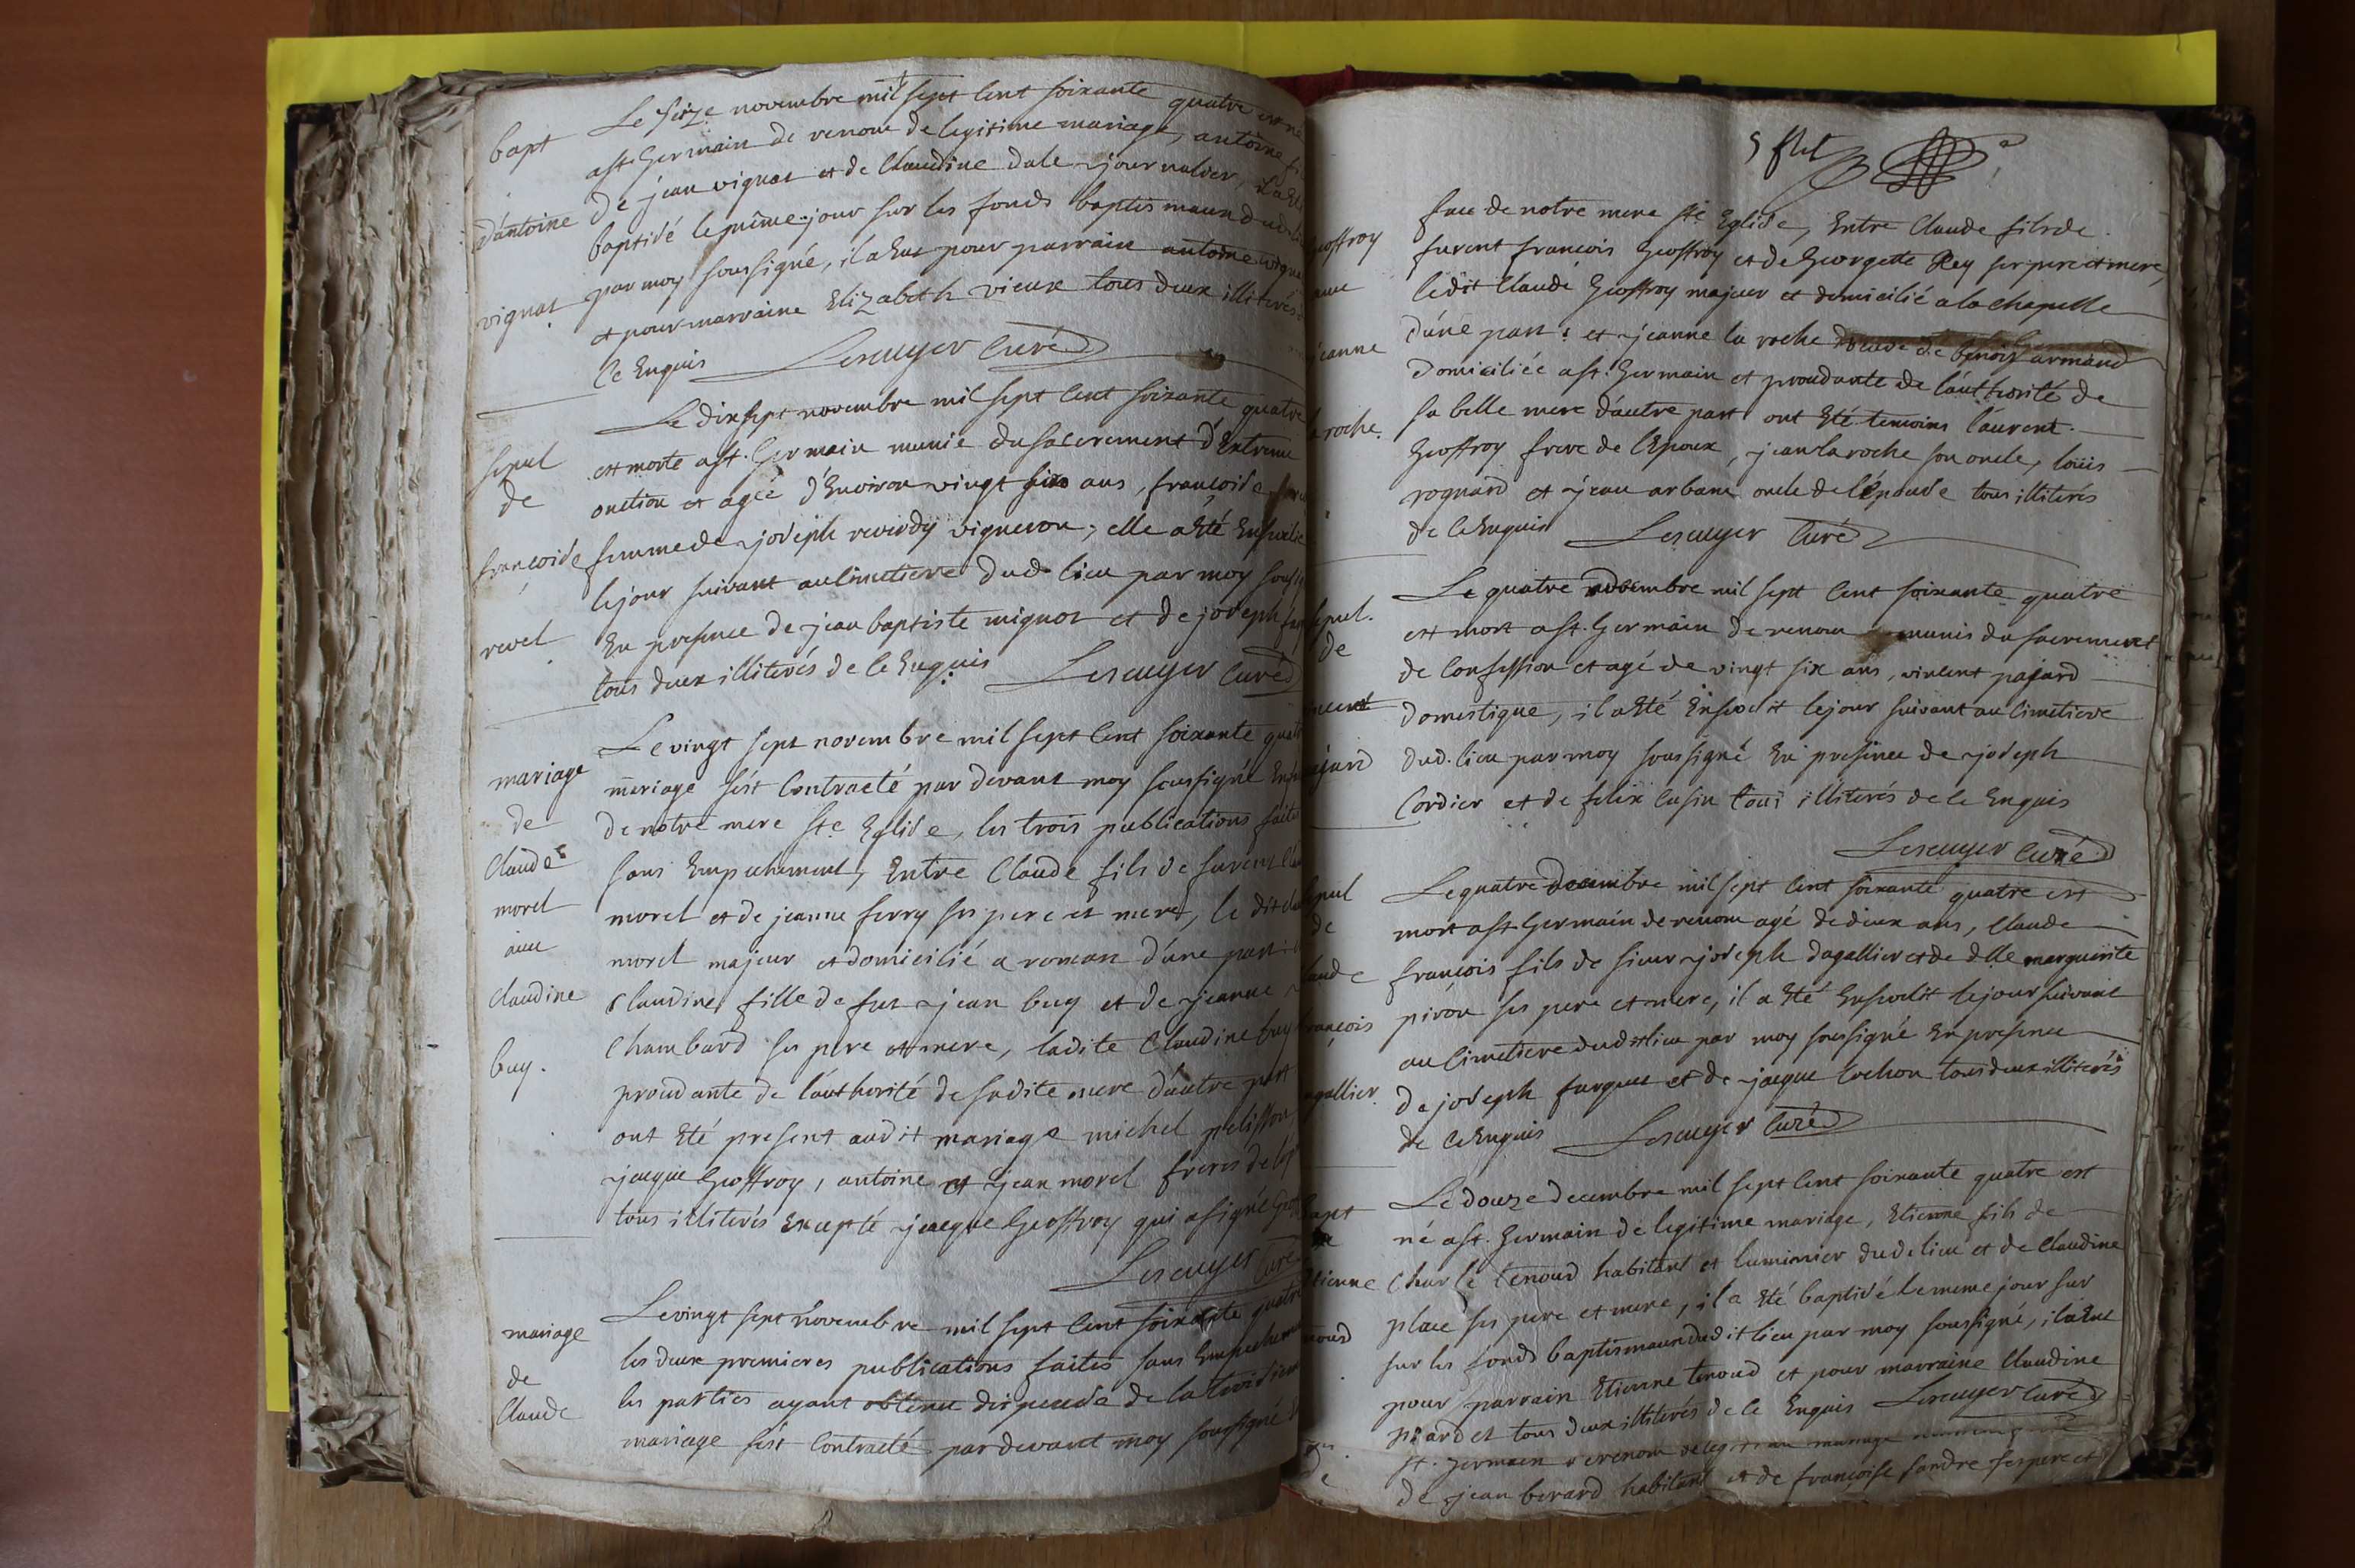 bapt
d'antoine
vignat
Le seize novembre mil sept cent soixante quatre est né
a st. Germain de renom de legitime mariage, antoine
de jean vignat et de Claudine dale journalier,
baptisé le même jour sur les fonds baptismaux dud
par moy soussigné, il a eut pour parrain antoine
et pour marraine Elizabeth vieux tous deux illiterés
Ce Enquis Lescuyer Curé
sepul
de
françoise
revel
Le dix sept novembre mil sept cent soixante quatre
est morte a st. Germain munie du sacrement d'Extreme
onction et agée d'Environ vingt six ans, françoise
femme de joseph reverdy vigneron; elle a Eté Ensevelie
le jour suivant au Cimetiere dud. lieu par moy
En presence de jean baptiste mignot et de joseph
tous deux illiterés de Ce Enquis Lescuyer Curé
mariage
de
Claude
morel
avec
Claudine
buy.
Le vingt sept novembre mil sept cent soixante
mariage s'est Contracté par devant moy soussigné
de notre mere Ste Eglise, les trois publications
sans Empechement, Entre Claude fils de furent
morel et de jeanne ferry ses pere et mere, le dit
morel majeur et domicilié a roman d'une part
Claudine fille de fut jean buy et de jeanne
Chambard ses pere et mere, ladite Claudine buy
proudante de l'authorité de sadite mere d'autre part
ont Eté present audit mariage michel pelisson
jacque Geoffroy, antoine et jean morel freres de
tous illiterés Excepté jacque Geoffroy qui a signé
Lescuyer Curé
mariage
de
Claude
Le vingt sept novembre mil sept cent soixante quatre
les deux premieres publications faites sans
les parties ayant obtenu dispense de la
mariage s'est Contracté par devant moy soussigné
Geoffroy
jeanne
roche.
face de notre mere ste Eglise, Entre Claude fils de
furent françois Geoffroy et de Georgette Rey ses pere et mere,
ledit Claude Geoffroy majeur et domicilié a la chapelle
d'une part; et jeanne la roche veuve de benoit armand
domiciliée a st. Germain et proudante de l'authorité de
sa belle mere d'autre part ont Eté temoins laurent
Geoffroy frere de l'Epoux, jean la roche son oncle, loüis
rognard et jean arbane oncle de l'épouse tous illiterés
de Ce Enquis Lescuyer Curé
sepul.
de
Le quatre mil sept cent soixante quatre
est mort a st. Germain de renom munis du sacrement
de Confession et agé de vingt six ans, vincent pajard
domestique, il a Eté Ensevelit le jour suivant au Cimetiere
dud. lieu par moy soussigné En presence de joseph
Cordier et de felix Cusin tous illiterés de Ce Enquis
Lescuyer Curé
de
Le quatre decembre mil sept cent soixante quatre est
mort a st Germain de renom agé de deux ans, Claude
françois fils de sieur joseph dagallier et de delle marguerite
piron ses pere et mere, il a Eté Ensevelit le jour suivant
au Cimetiere dudit lieu par moy soussigné En presence
de joseph farques et de jacque Cochon tous deux illiterés
de Ce Enquis Lescuyer Curé
Le douze decembre mil sept cent soixante quatre est
né a st. Germain de legitime mariage, Etienne fils de
Charle tenoud habitant et luminier dud. lieu et de Claudine
place ses pere et mere, il a Eté baptisé le meme jour sur
sur les fonds baptismaux dudit lieu par moy soussigné, il a Eut
pour parrain Etienne tenoud et pour marraine Claudine
tous deux illiterés de Ce Enquis Lescuyer Curé
st. Germain de renom de legitime mariage
de jean berard habitant et de françoise fandre ses pere et